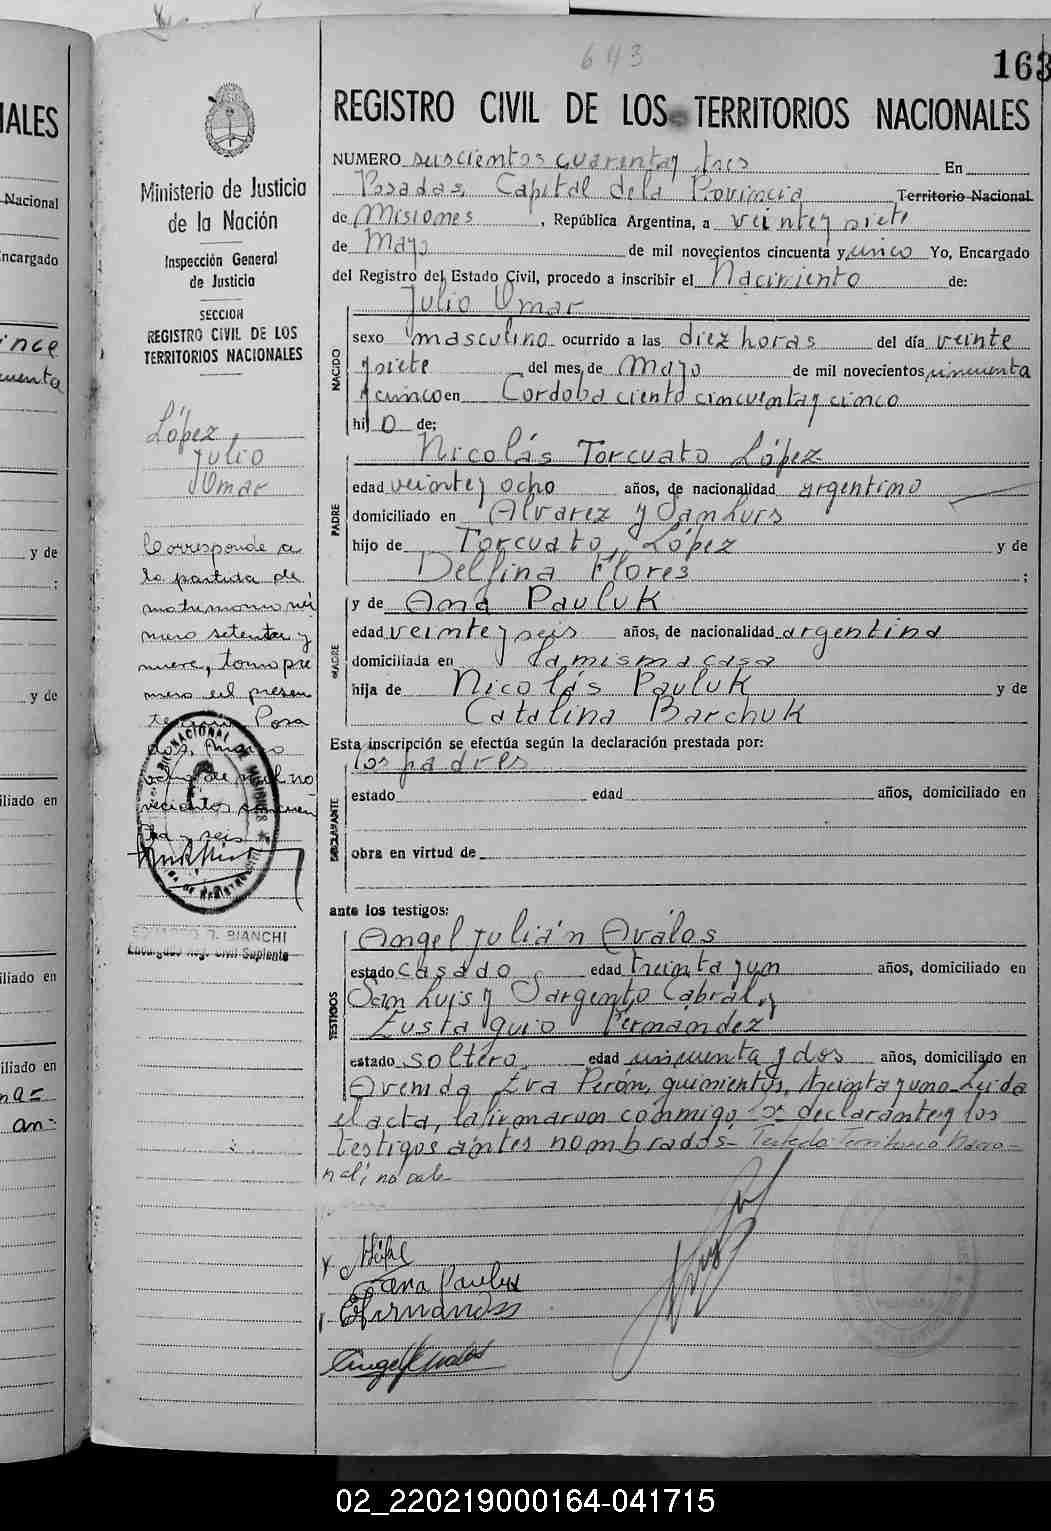 643
163
REGISTRO CIVIL DE LOS TERRITORIOS NACIONALES
NUMERO seiscientos cuarenta y tres En
Posadas, Capital de la Provincia Territorio Nacional
de Misiones, República Argentina, a veinte y siete
de Mayo de mil novecientos cincuenta y cinco Yo, Encargado
del Registro del Estado Civil, procedo a inscribir el Nacimiento de:
Julio Omar
NACIDO
sexo masculino ocurrido a las diez horas del día veinte
y siete del mes de Mayo de mil novecientos cincuenta
y cinco en Cordoba ciento cincuenta y cinco
hijo de;
Nicolás Torcuato López
PADRE
edad veinte y ocho años, de nacionalidad argentino
domiciliado en Alvarez y San Luis
hijo de Torcuato López y de
Delfina Flores ;
MADRE
y de Ana Pauluk
edad veinte y seis años, de nacionalidad argentina
domiciliada en la misma casa
hija de Nicolás Pauluk y de
Catalina Barchuk
Esta inscripción se efectúa según la declaración prestada por:
los padres
DECLARANTE
estado edad años, domiciliado en
obra en virtud de
ante los testigos:
TESTIGOS
Angel Julián Avalos
estado casado edad treinta y un años, domiciliado en
San Luis y Sargento Cabral y
Eustaquio Fernández
estado soltero edad cincuenta y dos años, domiciliado en
Avenida Eva Perón, quinientos treinta y uno Leida
el acta, la firmaron conmigo, los declarantes y los
testigos antes nombrados- Testado Territorio Nacio-
nal; no vale
Ana Pauluk
EFernandez
Angel J Avalos
Ministerio de Justicia
de la Nación
Inspección General
de Justicia
SECCION
REGISTRO CIVIL DE LOS
TERRITORIOS NACIONALES
López,
Julio
Omar
Corresponde a
la partida de
matrimonio nú
mero setenta y
nueve, tomo pri
mero del presen
Posa
das, Marzo
ocho de mil no
vecientos cincuen
ta y seis
NACIONAL DE MISIONES
J. BIANCHI
Encargado Reg. Civil Suplente
IALES
Nacional
ncargado
ince
uenta
y de
;
y de
iliado en
iliado en
iliado en
na=
an-
02_220219000164-041715